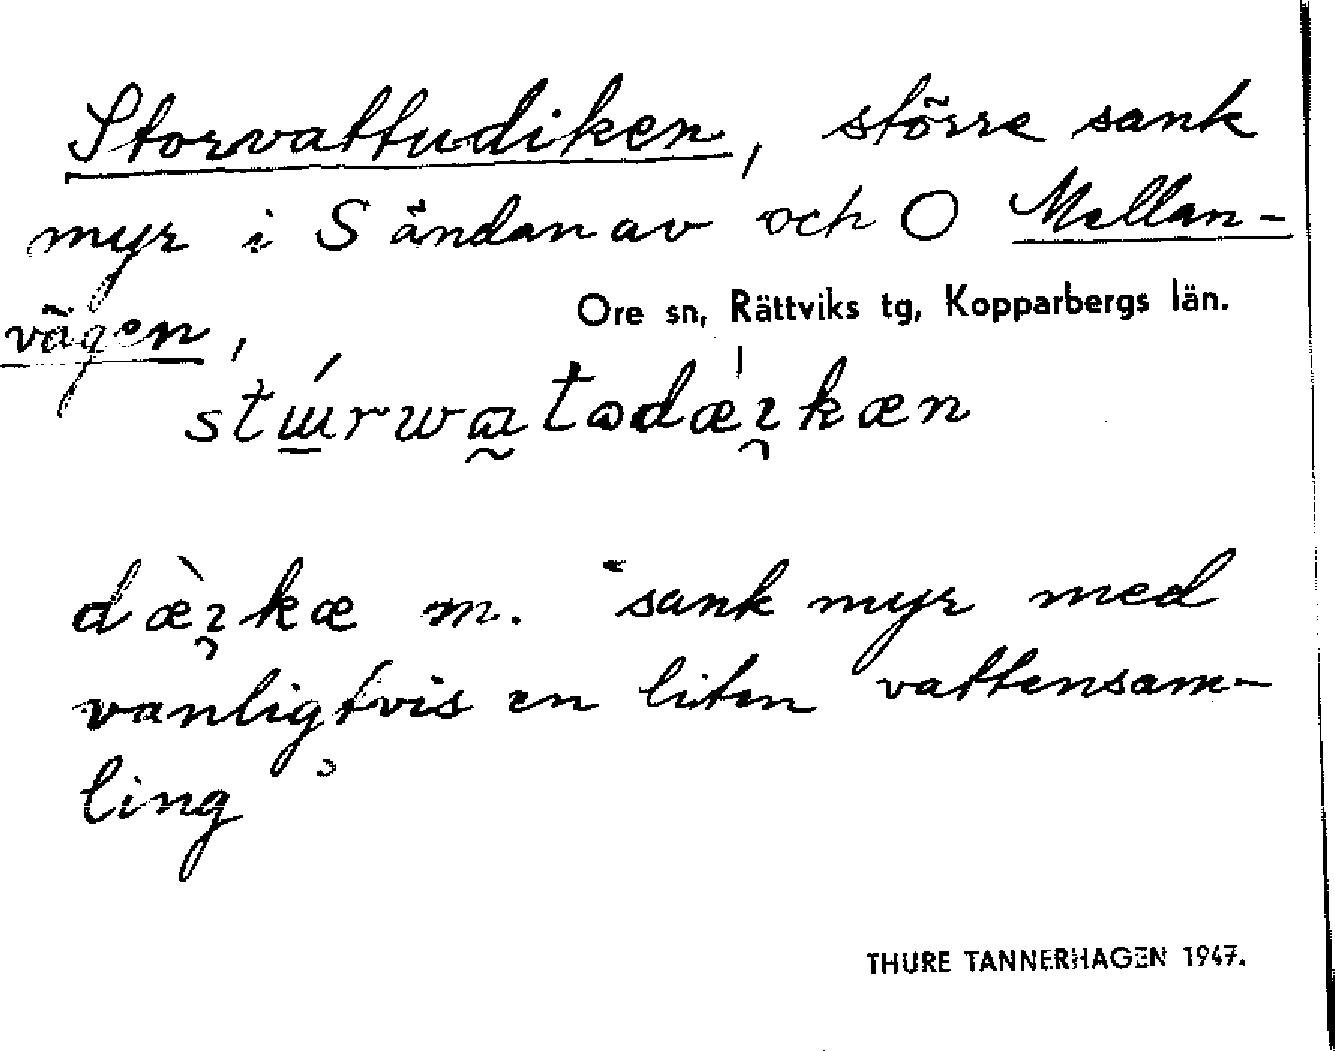 Storvattudiken, större sank
myr i S ändan av och O Mellan-
vägen,
Ore sn, Rättviks tg, Kopparbergs län.
dæ̀ɩkæ m. "sank myr med
vanligtvis en liten vattensam-
ling"
THURE TANNERHAGEN 1947.